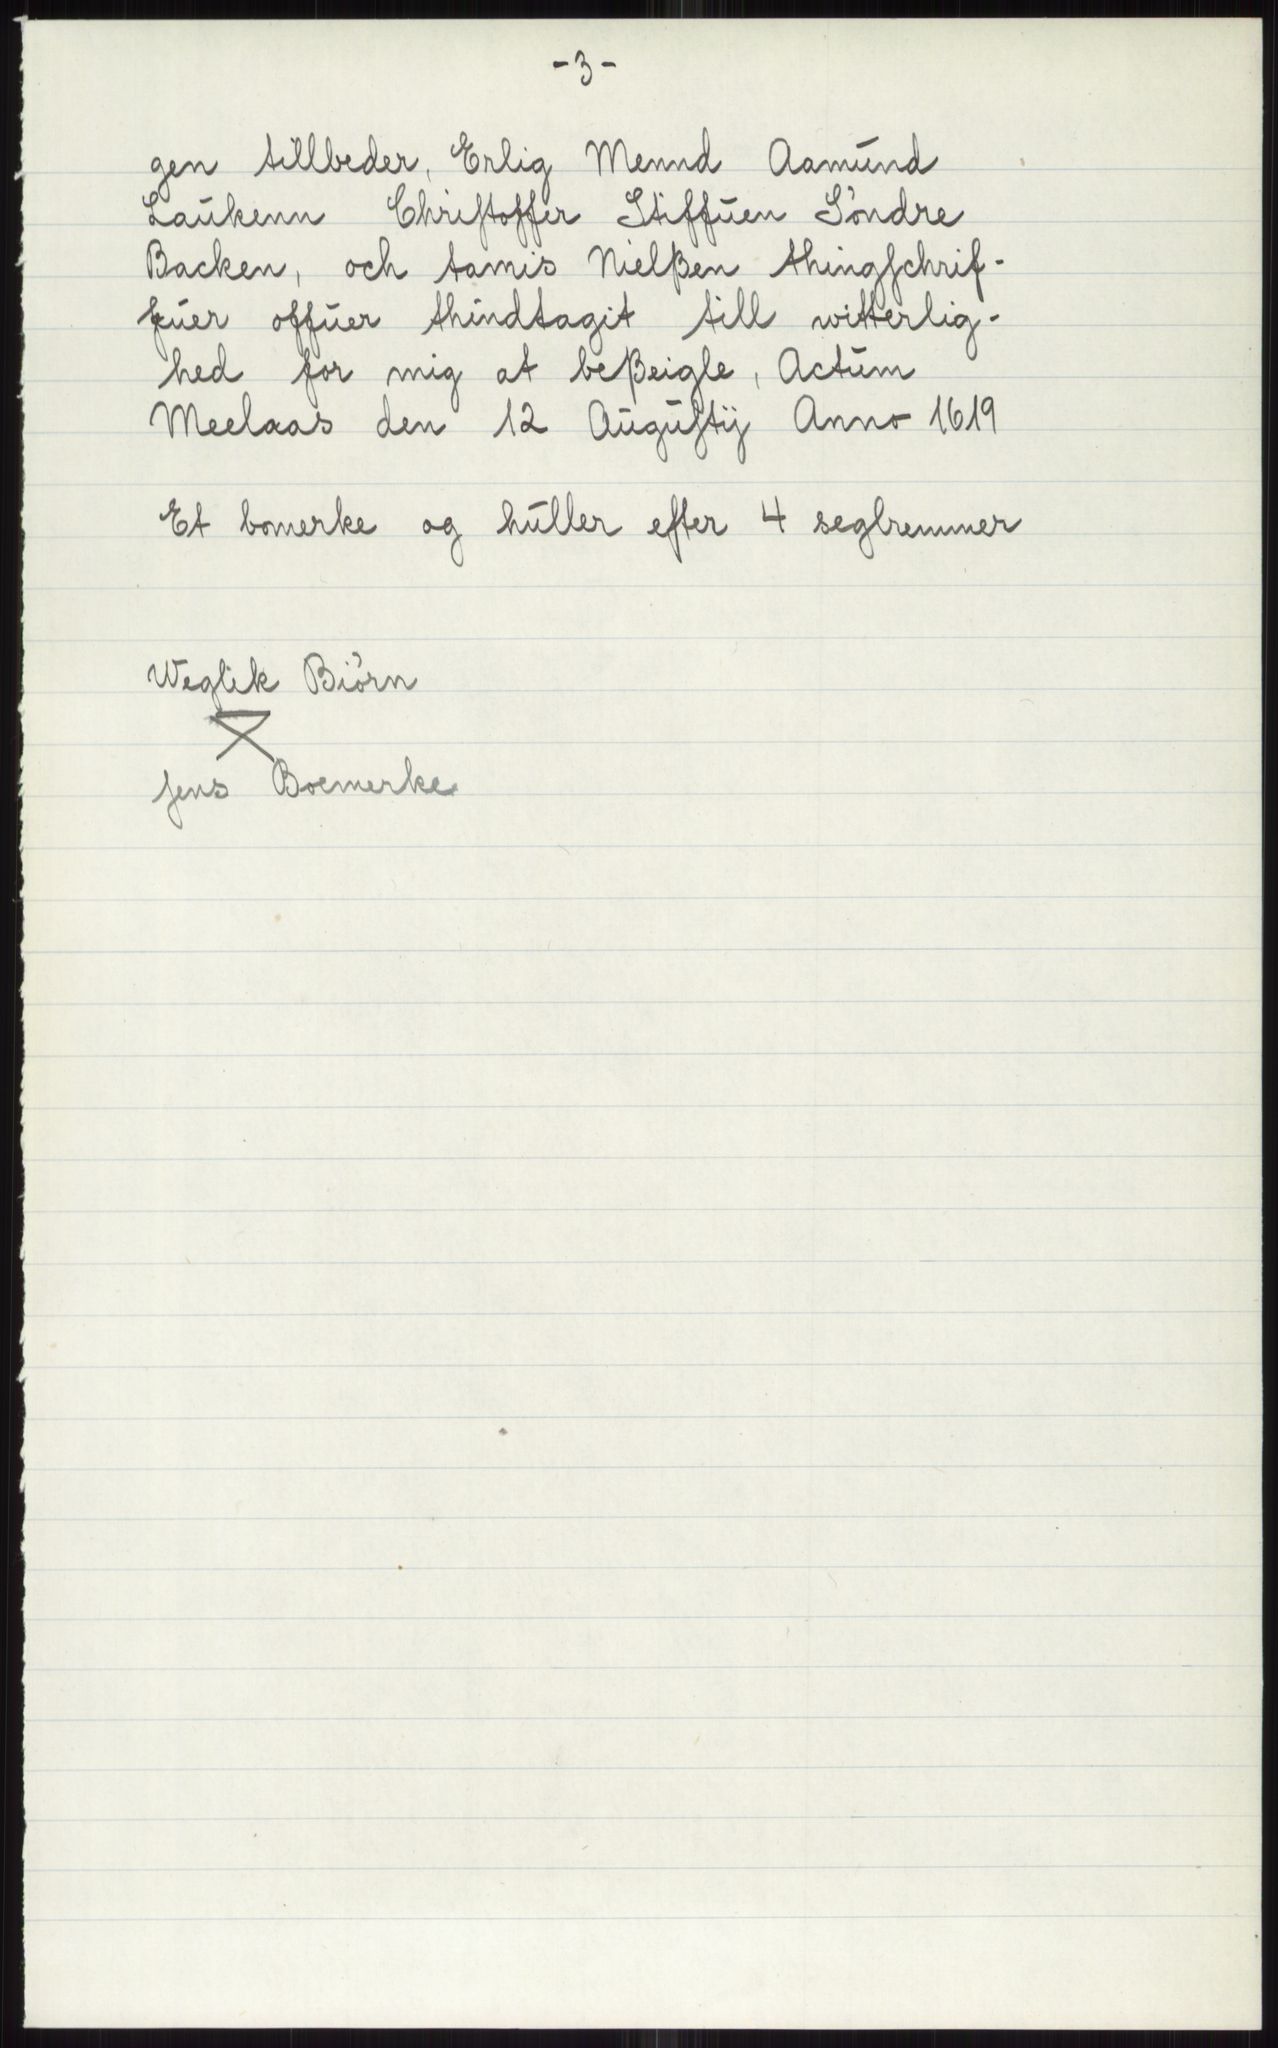 -3-
gen tillbeder, Erlig Mennd Aamund
Laukenn Christoffer Stiffuen Söndre
Backen, och tamis Nielßen thingschrif-
fuer offuer thindtagit till witterlig-
hed for mig at beßeigle, Actum
Meelaas den 12 Augustij Anno 1619
Et bomerke og huller efter 4 seglremmer
Weglik Biörn
jens Boemerke